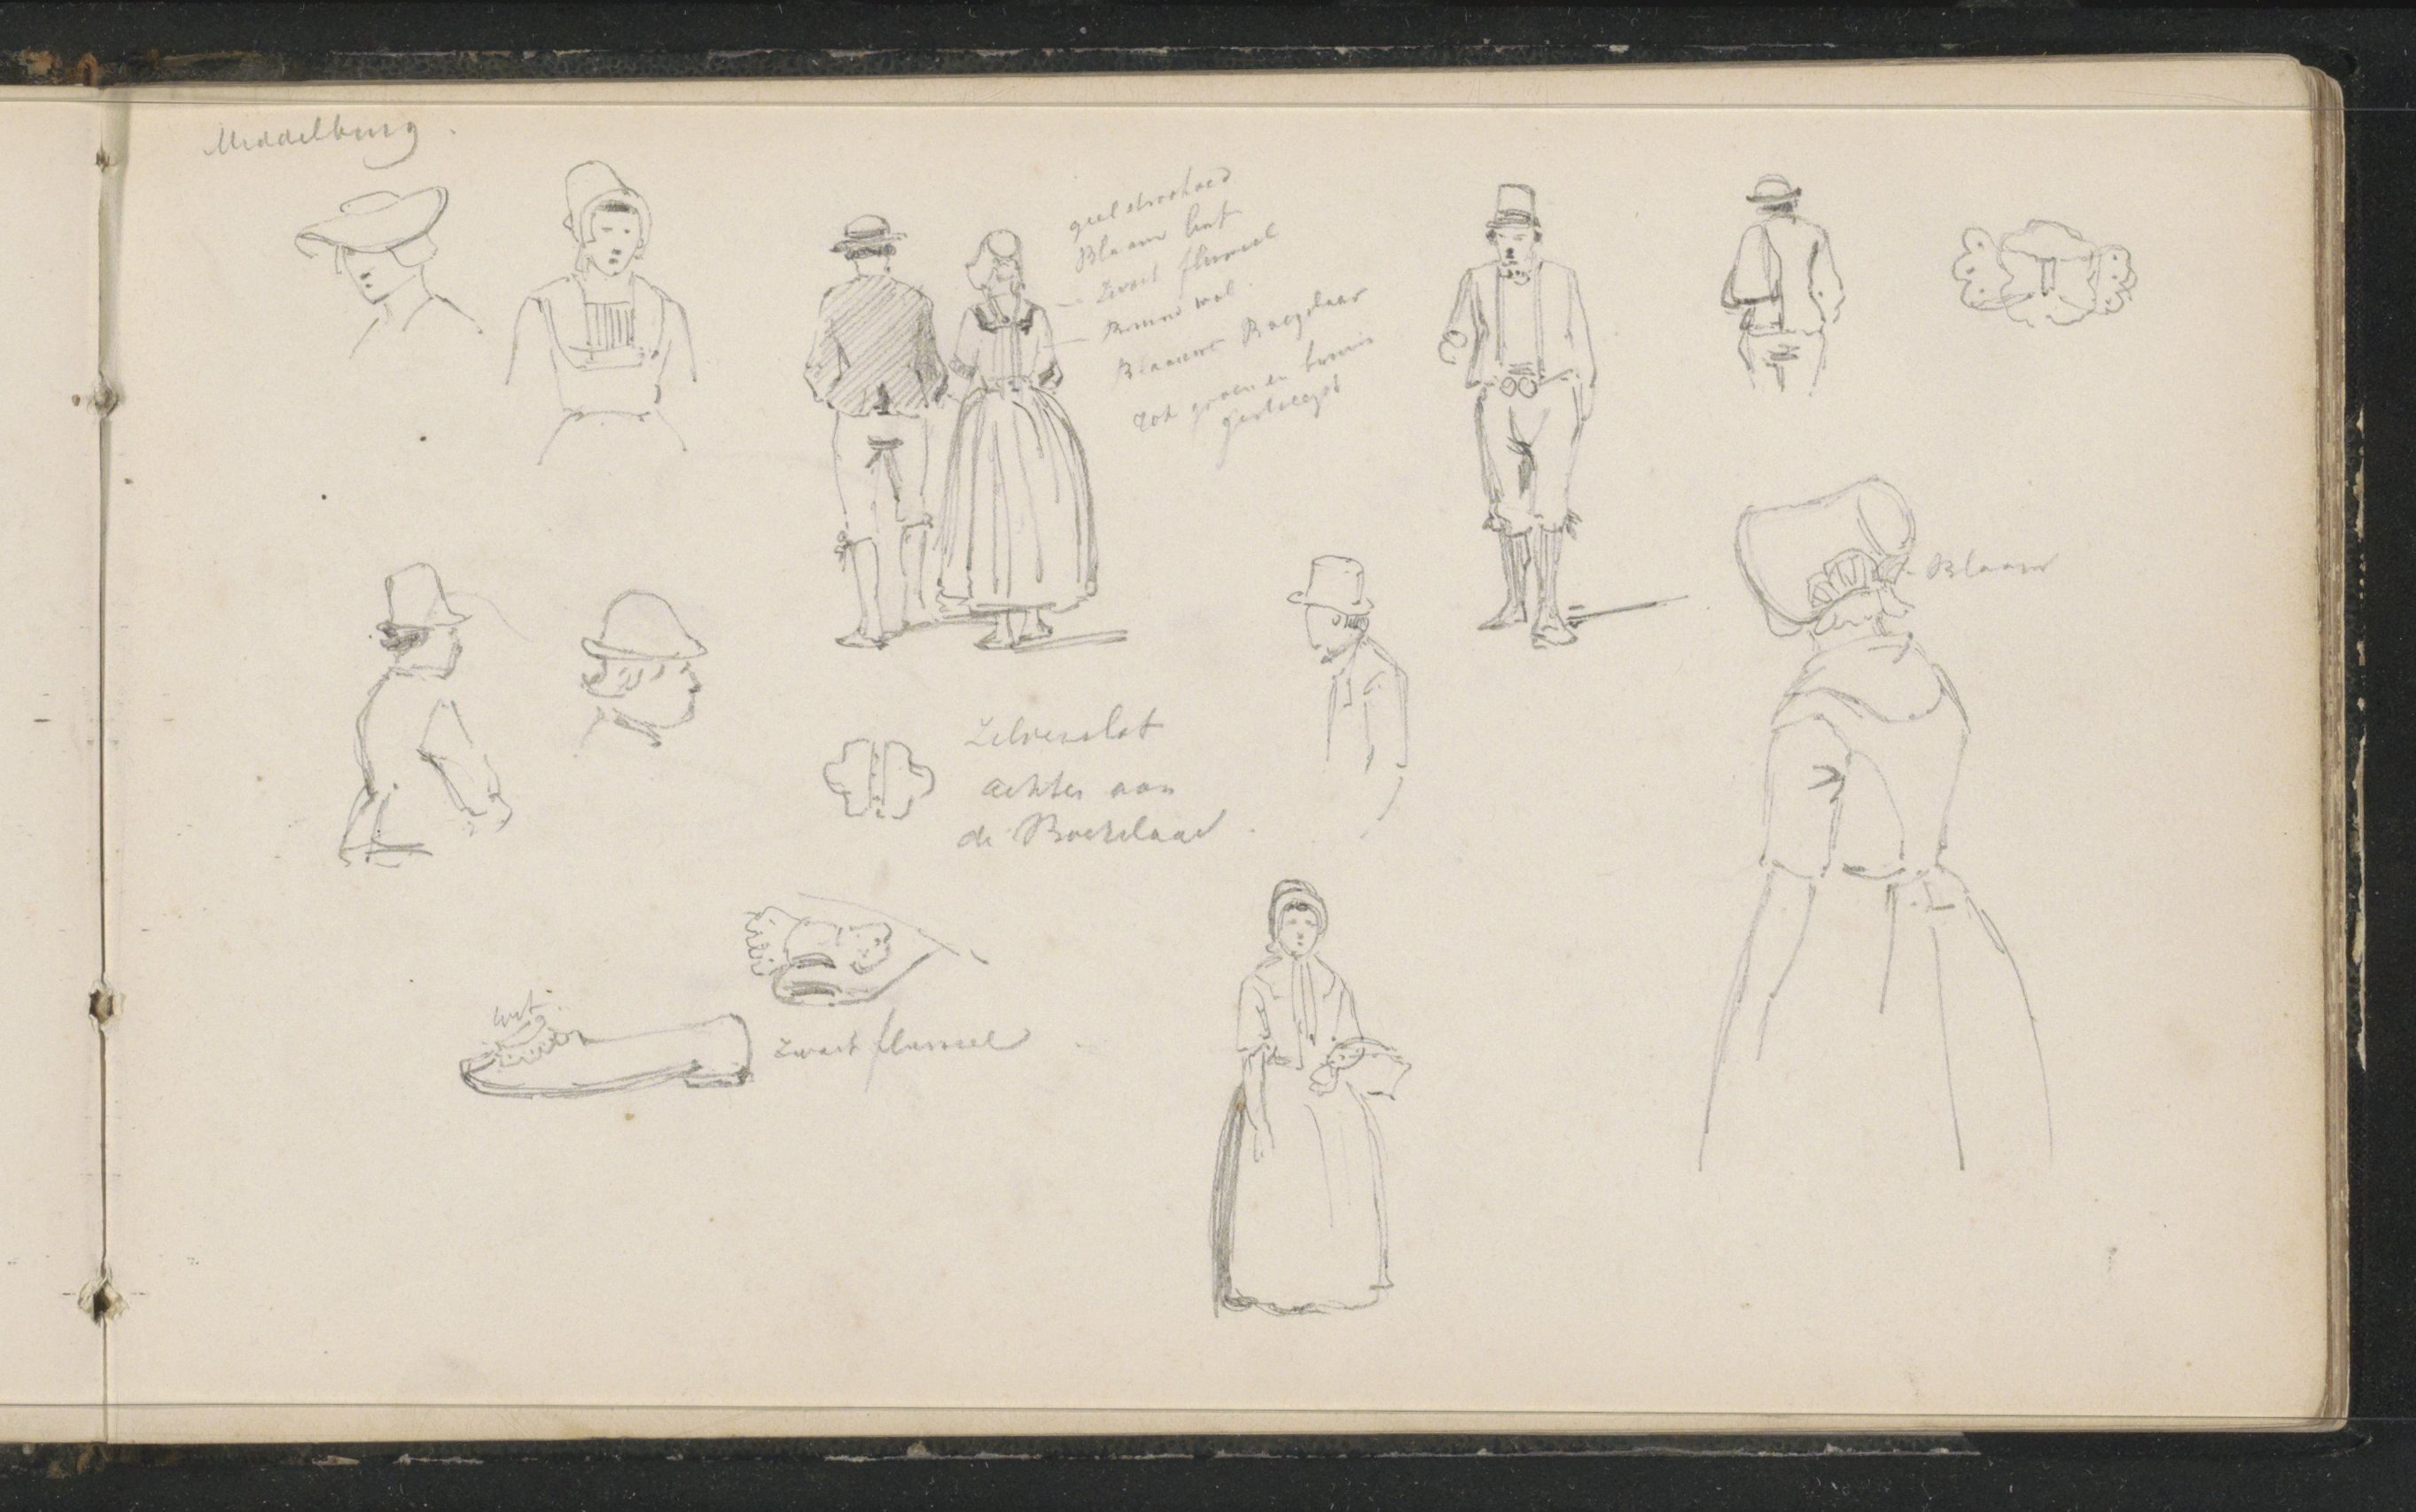 Middelburg.
geel stroohoed
Blaauw lint
Zwart fluweel
Bruine wol.
Blaauwe
rood groen en bruin
gestreept
Blaauw
Zilverslot
achter aan
de
wit
Zwart fluweel